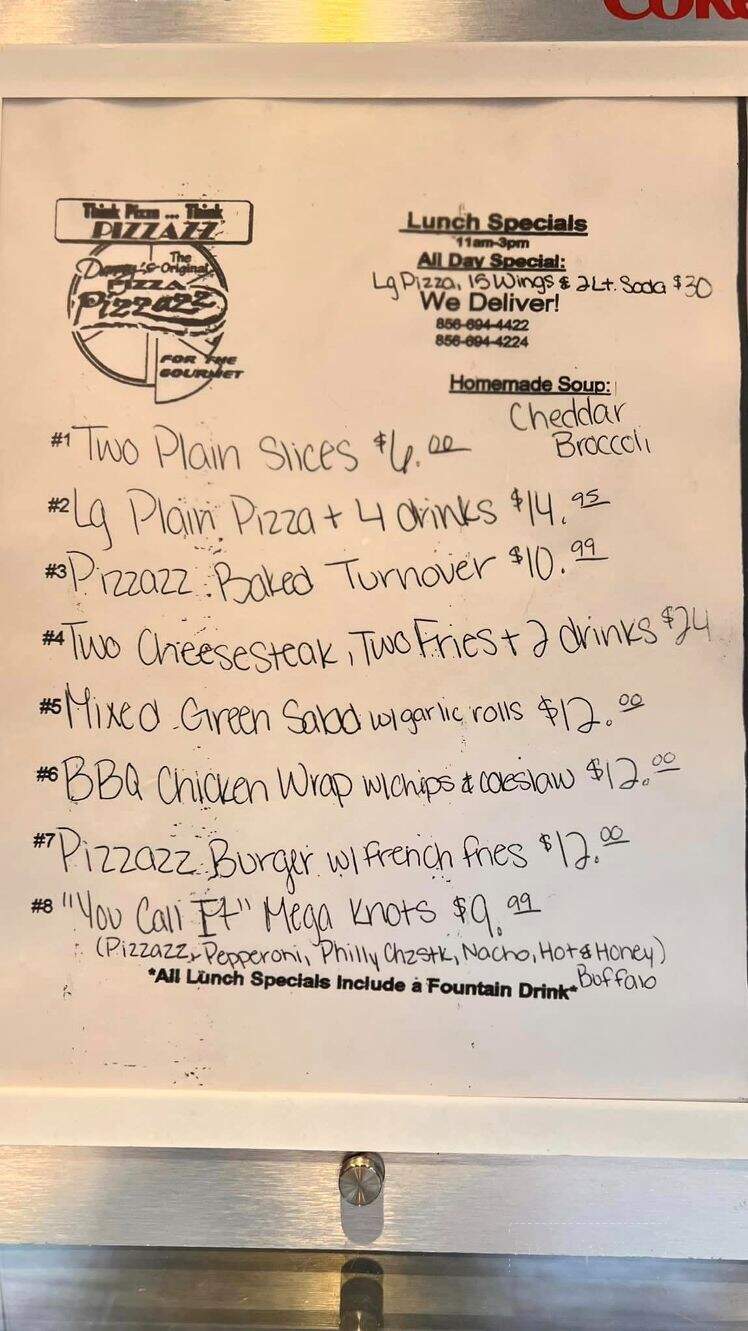 COKE
Think Pizza ... Think
PIZZAZZ
The
Danny's Original
PIZZA
Pizzazz
FOR THE
GOURMET
Lunch Specials
11am-3pm
All Day Special:
Lg Pizza, 15 Wings & 2Lt. Soda $30
We Deliver!
856-694-4422
856-694-4224
Homemade Soup:
Cheddar
Broccoli
#1 Two Plain Slices $6.00
#2 Lg Plain Pizza + 4 drinks $14.95
#3 Pizzazz Baked Turnover $10.99
#4 Two Cheesesteak, Two Fries + 2 drinks $24
#5 Mixed Green Salad w/garlic rolls $12.00
#6 BBQ Chicken Wrap w/chips & coleslaw $12.00
#7 Pizzazz Burger w/ french fries $12.00
#8 "You Call It" Mega Knots $9.99
(Pizzazz, Pepperoni, Philly Chzstk, Nacho, Hot & Honey)
Buffalo
*All Lunch Specials Include a Fountain Drink*